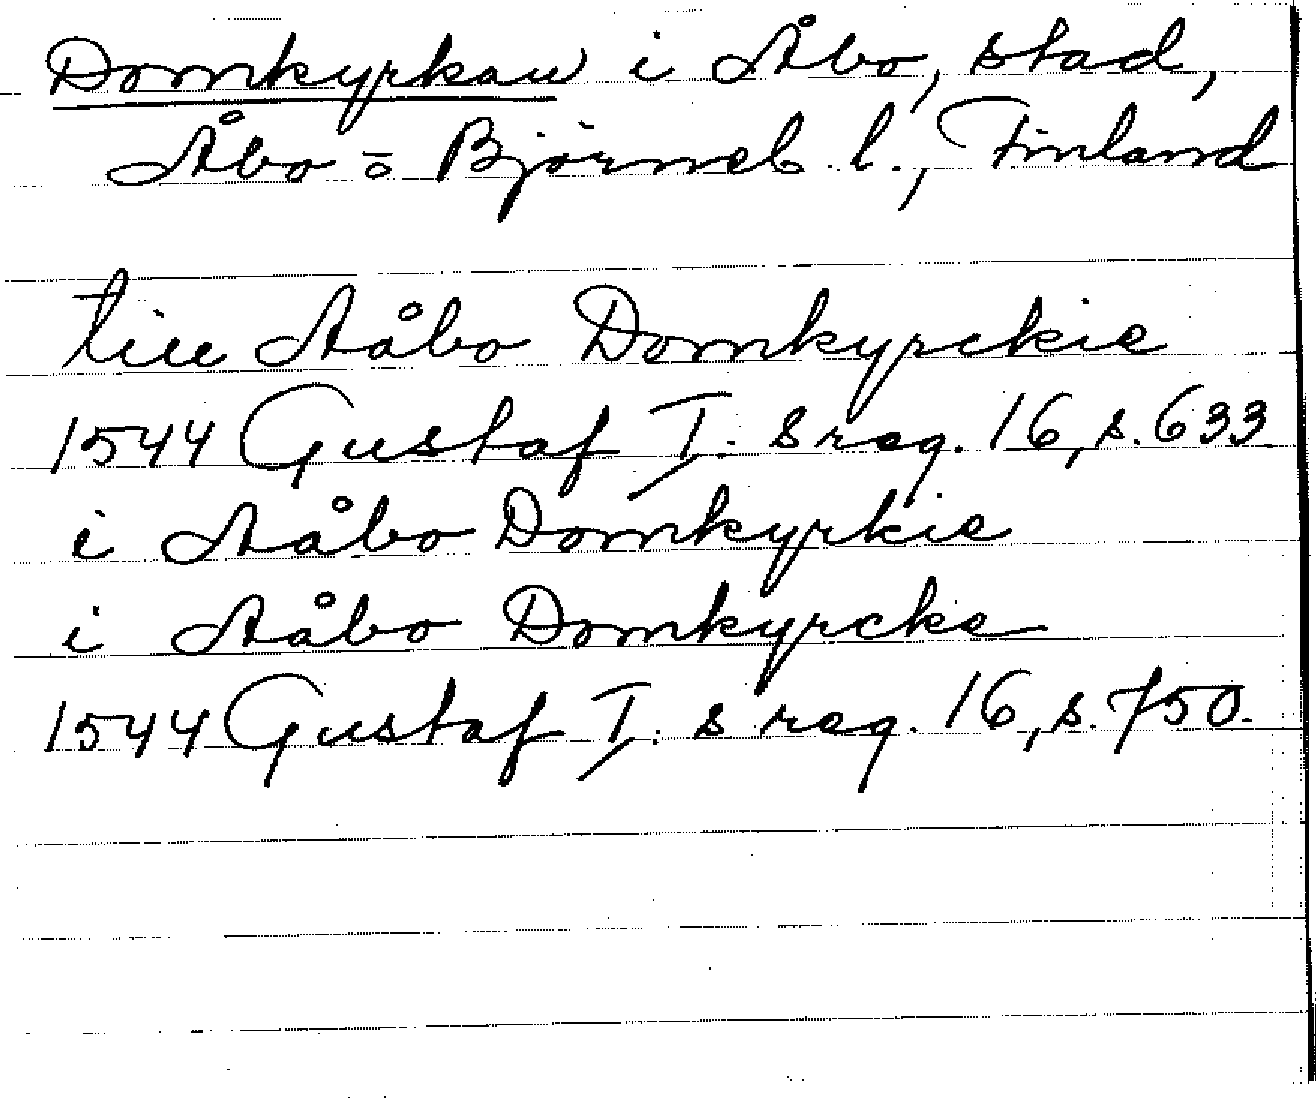 Domkyrkan i Åbo, stad,
Åbo-o Björneb. l., Finland
till Aåbo Domkyrckie
1544 Gustaf I:s reg. 16, s. 633
i Aåbo Domkyrkie
i Aåbo Domkyrcke
1544 Gustaf I:s reg. 16, s. 750.